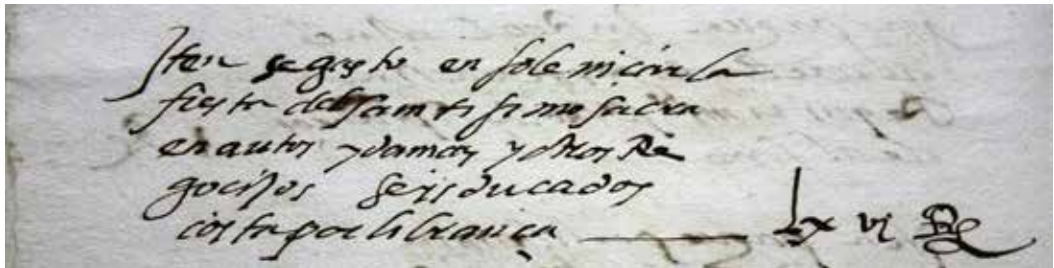 Iten se gasto en solenicar la
fiesta del santisimo sacra
en autos y damças y otros Re
gocijos seis ducados
costa por librança lxvi Rs